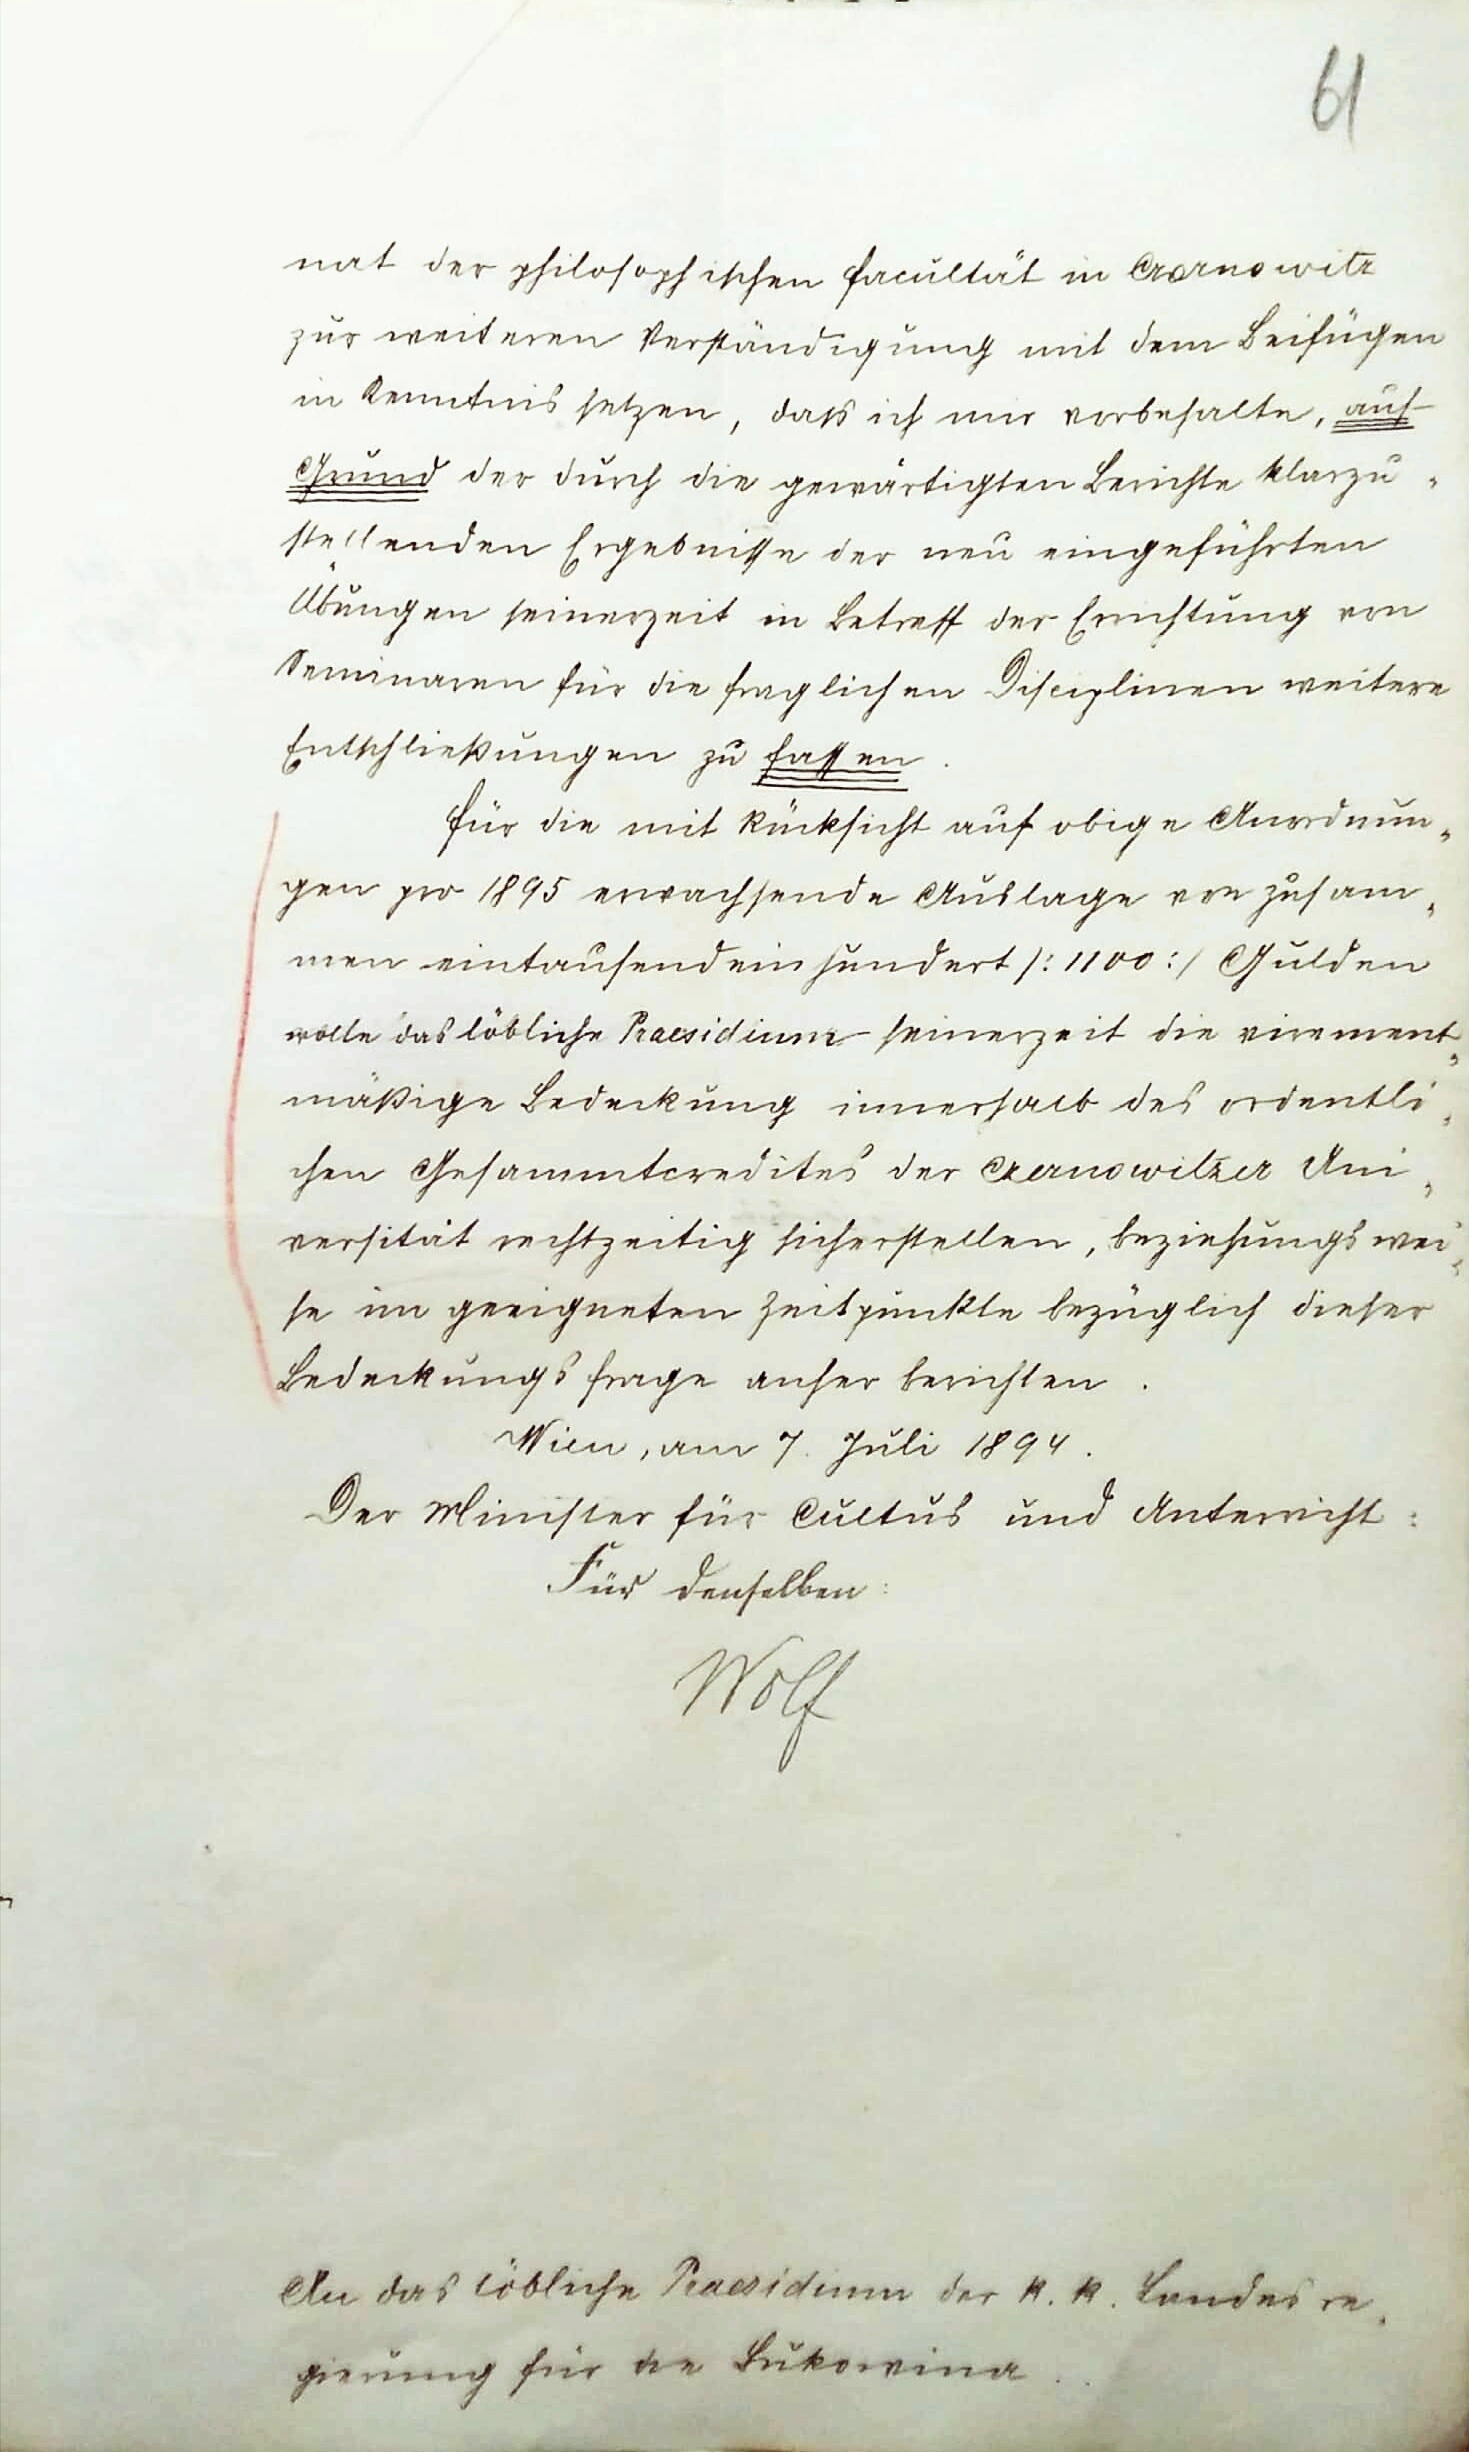 61
nat der philosophischen Facultät in Czernowitz
zur weiteren Verständigung mit dem Beifügen
in Kenntnis setzen, daß ich mir vorbehalte, auf
Grund der durch die gewärtigten Berichte klarzu„
stellenden Ergebnisse der neu eingeführten
Übungen seinerzeit in Betreff der Errichtung von
Seminaren für die fraglichen Disciplinen weitere
Entschließungen zu fassen.
Für die mit Rücksicht auf obige Anordnun„
gen pro 1895 erwachsende Auslage von zusam„
men eintausendeinhundert /: 1100 :/ Gulden
wolle das löbliche Praesidium seinerzeit die virement„
mäßige Bedeckung innerhalb des ordentli„
chen Gesammtcredites der Czernowitzer Uni„
versität rechtzeitig sicherstellen, beziehungswei„
se im geeigneten Zeitpunkte bezüglich dieser
Bedeckungsfrage anher berichten.
Wien, am 7. Juli 1894.
Der Minister für Cultus und Unterricht:
Für denselben:
Wolf
An das löbliche Praesidium der k. k. Landesre„
gierung für die Bukowina.